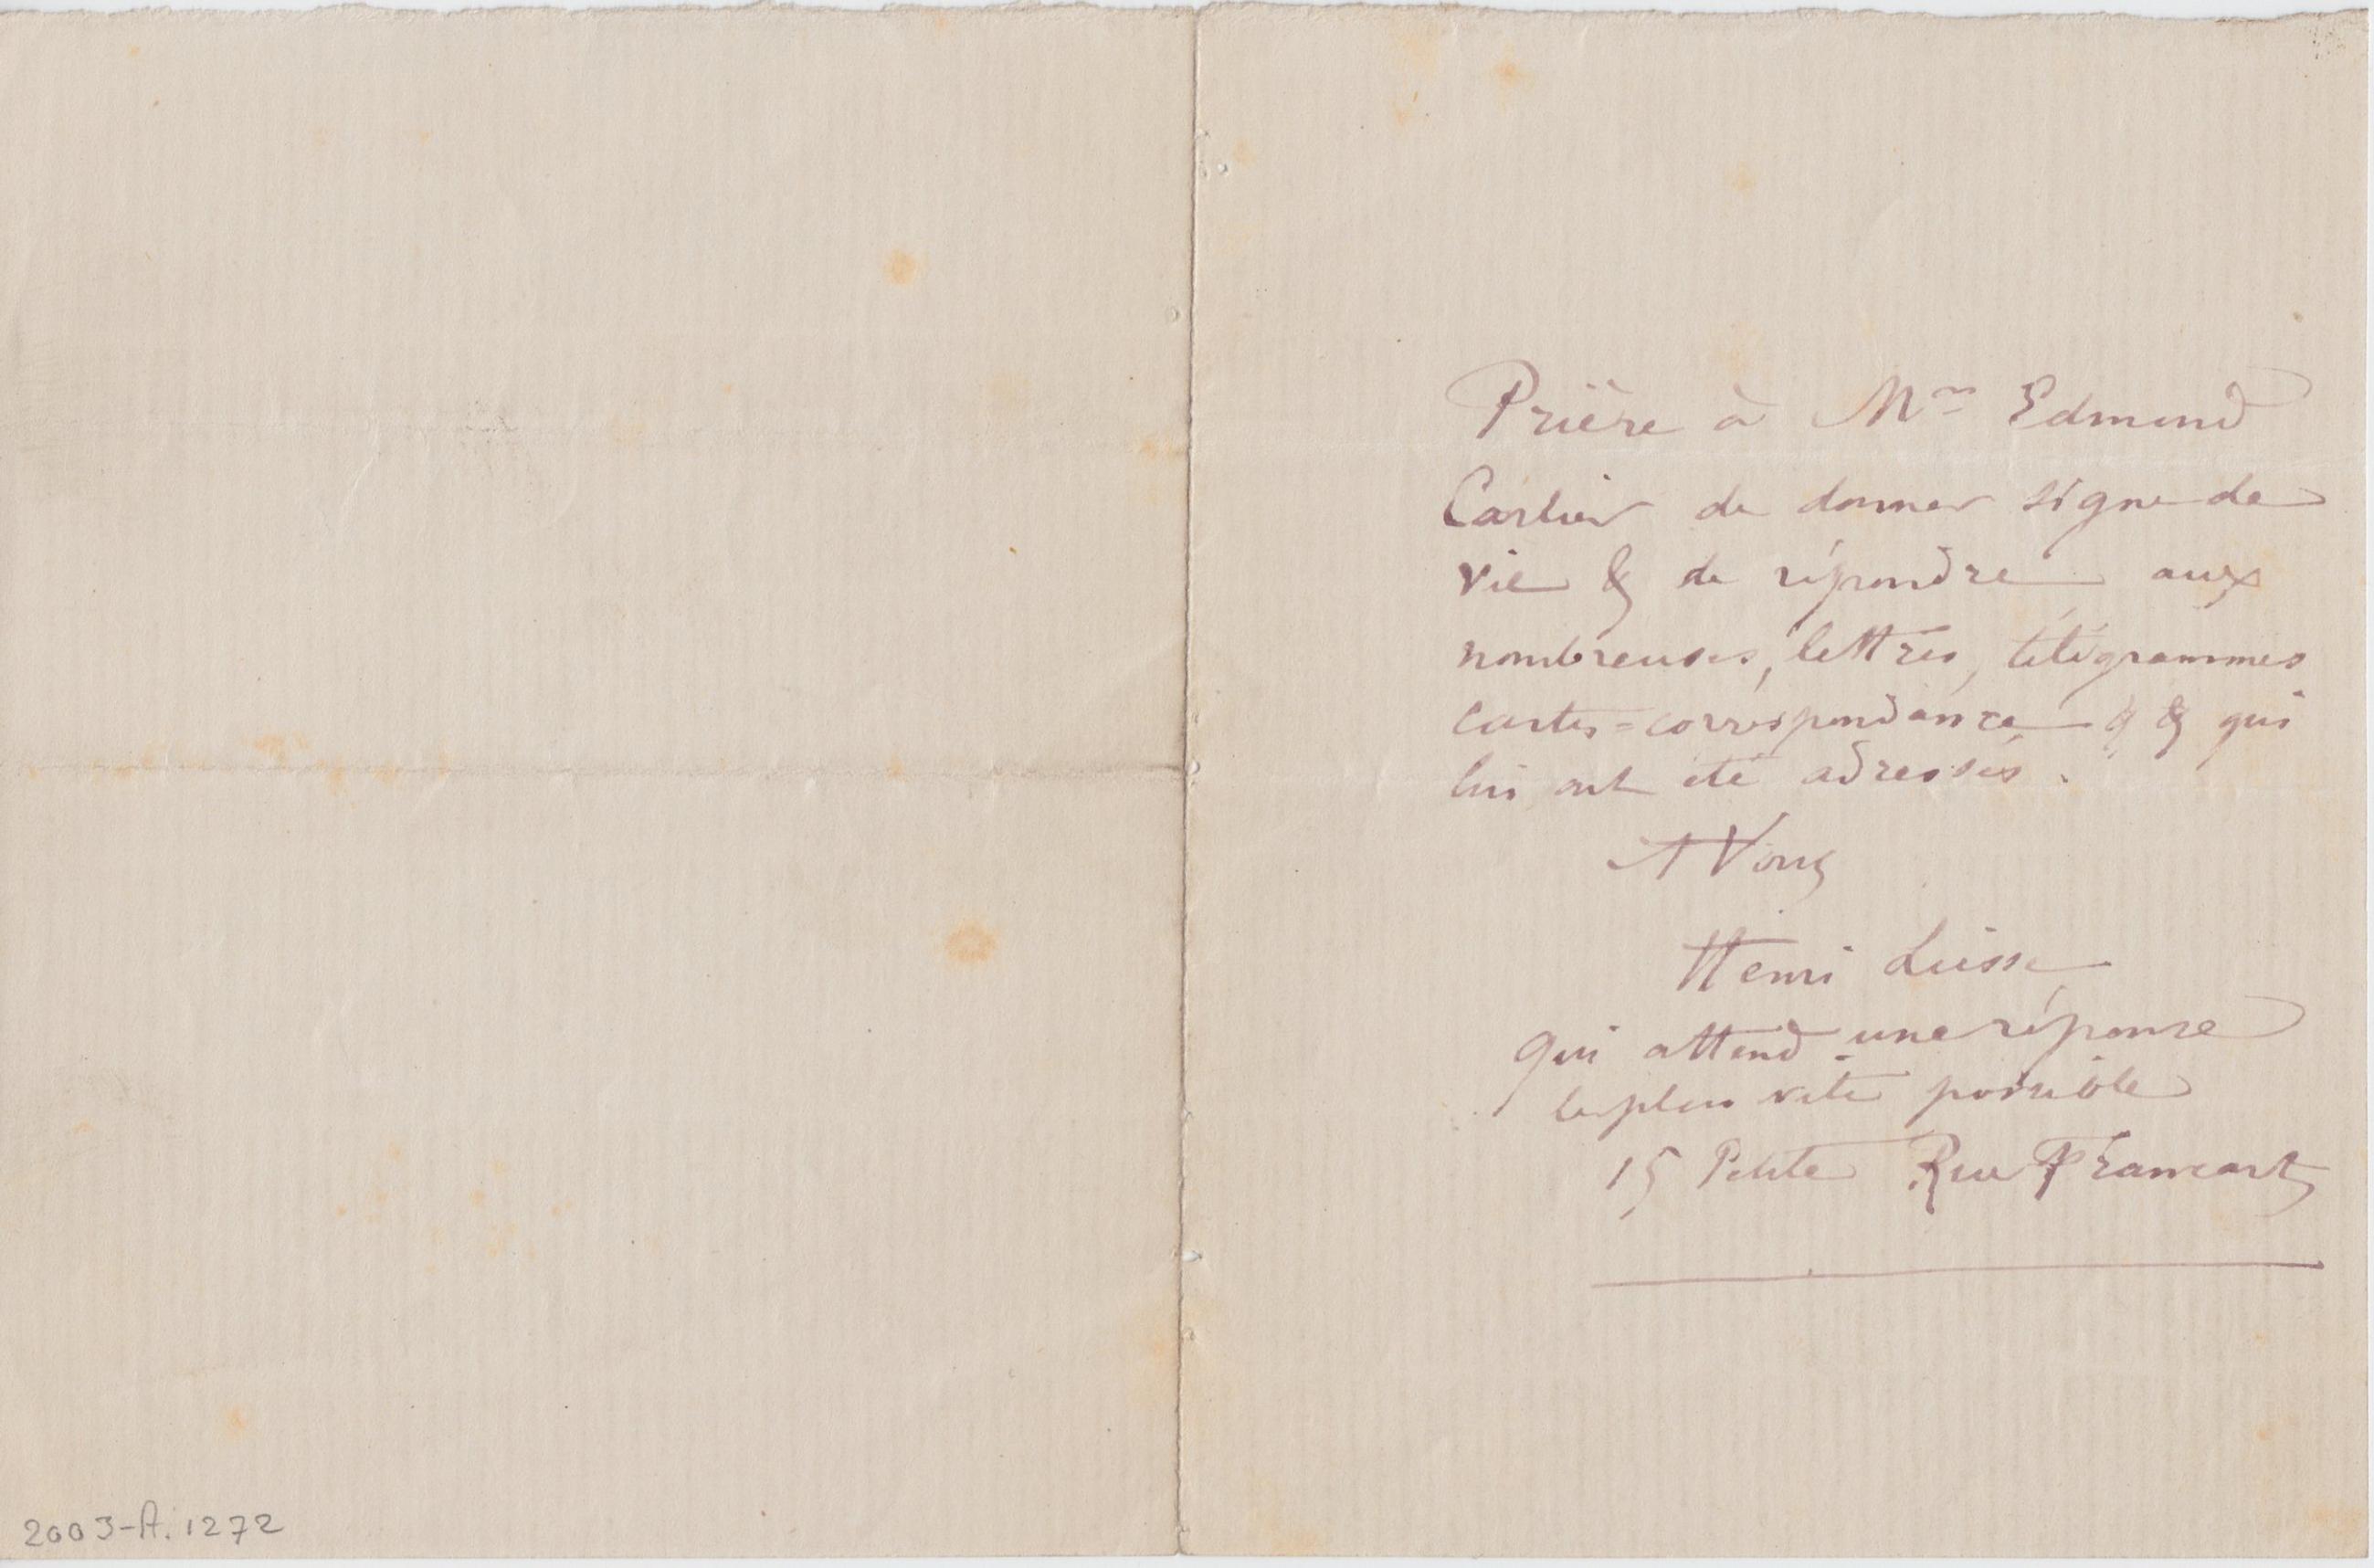 Prière à Mr Edmond
Carlier de donner signe de
vie & de répondre aux
nombreuses, lettres, télégrammes
cartes=correspondance & & qui
lui ont été adressés.
A Vous
Henri Liesse
qui attend une réponse
le plus vite possible
15 Petite Rue Francart
2003-A.1272